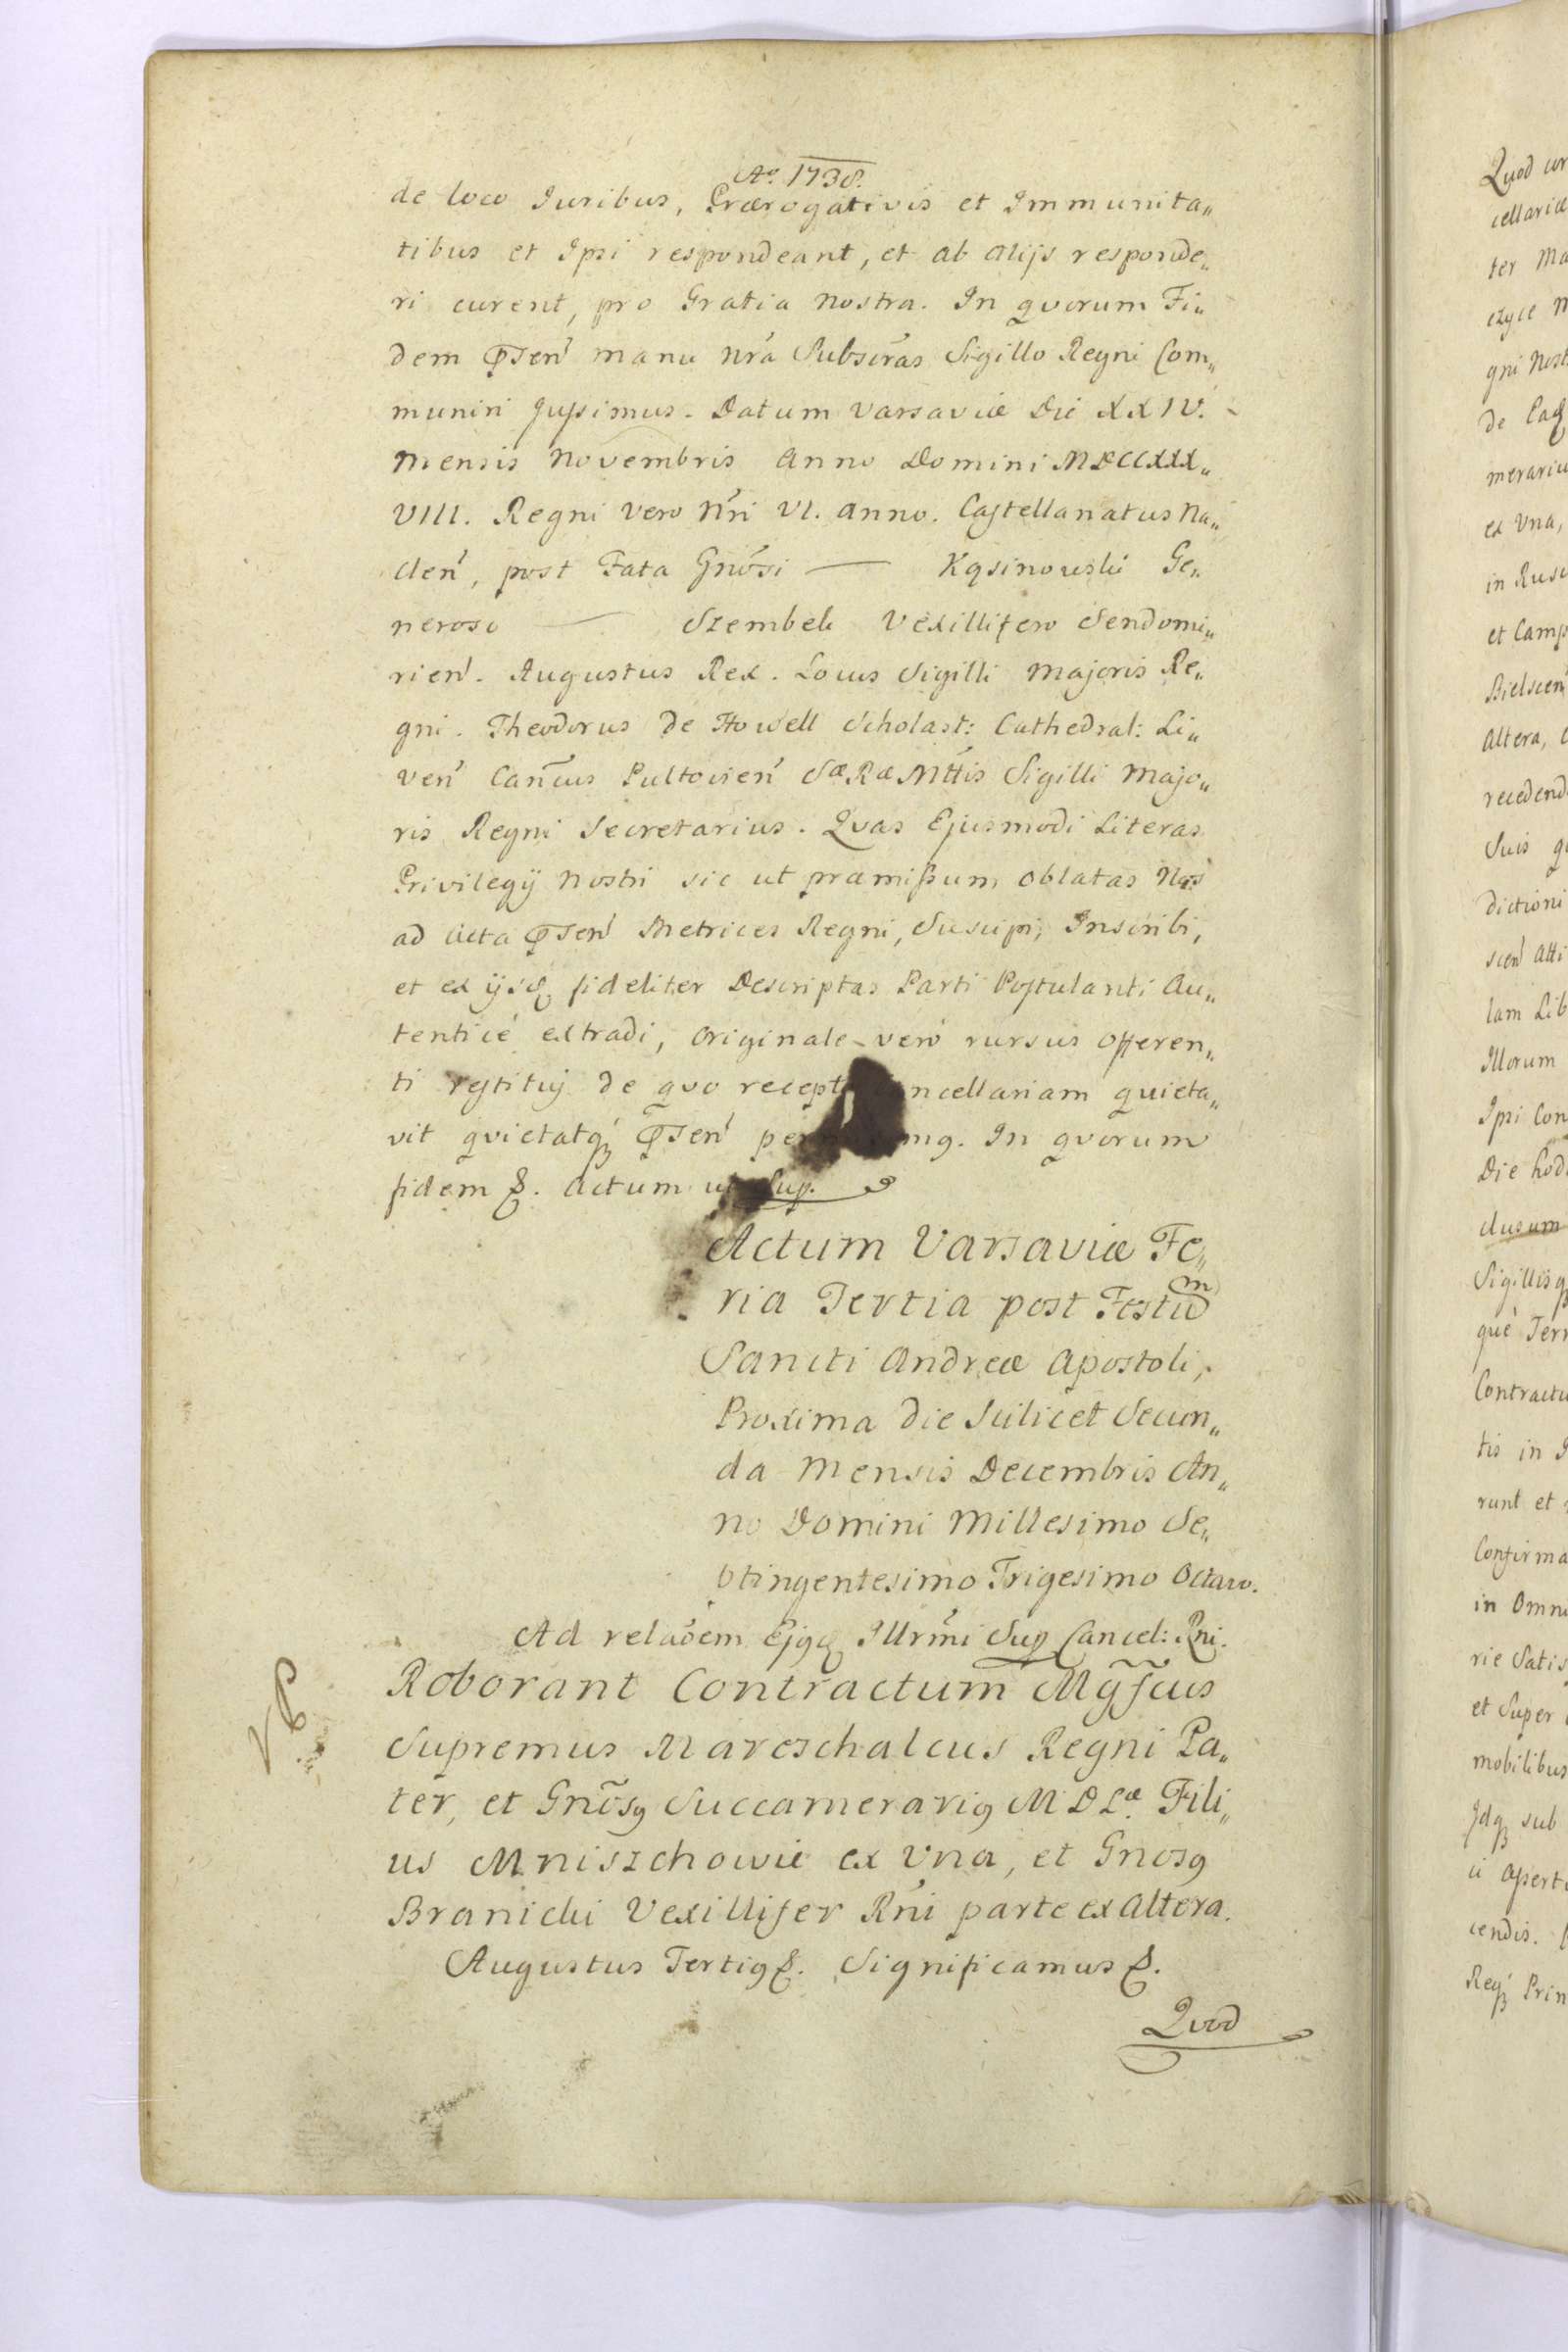 Aº 1738.
de loco Juribus, Prærogativis et Immunita„
tibus et Ipsi respondeant, et ab alijs responde„
ri curent, pro Gratia Nostra. In quorum Fi„
dem Pñten̄ manu Nrã Subscrãs Sigillo Regni Com„
muniri Jussimus. Datum Varsaviæ Die XXIV.
Mensis Novembris Anno Domini MDCCXXX„
VIII. Regni Vero Nri VI. anno. Castellanatus Na„
clen̄, post Fata Gnosi — Kąsinowski Ge„
neroso — Szembek Vexillifero Sendomi„
rien̄. Augustus Rex. Locus Sigilli Majoris Re„
gni. Theodorus de Howell Scholast: Cathedral: Li„
ven̄ Can̄cus Pultovien̄ SæRæMttis Sigilli Majo„
ris Regni Secretarius. Quas Ejusmodi Literas
Privilegij Nostri sic ut præmissum oblatas Nos
ad Acta Pñten̄ Metrices Regni, Suscipi, Inscribi,
et ex ijsdq fideliter Descriptas Parti Postulanti Au„
tenticè extradi, originale vero rursus offeren„
ti restituj de quo recept ncellariam quieta„
vit quietatq Pñten̄ per mq. In quorum
fidem &. Actum ut Sup.
Actum Varsaviæ Fe„
ria Tertia post Festum
Sancti Andreæ Apostoli,
Proxima die Scilicet Secun„
da Mensis Decembris An„
no Domini Millesimo Se„
ptingentesimo Trigesimo Octavo.
Ad relaõem Ejqdq Illrmi Sup Cancel: Rni.
Roborant Contractum Mg̃fcus
Supremus Mareschalcus Regni Pa„
ter, et Gnõsq Succamerariq M D Læ. Fili„
us Mniszchowie ex Vna, et Gnosq
Branicki Vexillifer Rni parte ex Altera.
Augustus Tertiq &. Significamus &.
Quod
Quod
cellariæ
ter Ma
czyce
gni Nost
de
merariu
ex Vna,
in Rus
et Camp
Bielscen̄
Altera,
recedend
Suis
dictioni
scen̄ Atti
lam Lib
Illorum
Ipsi Con
Die hod
clusum
Sigillis
què Ter
Contractu
tis in
runt et
Confirma
in Omni
rie Satis
et Super
mobilibus
Jdq sub
cendis.
Req Prin